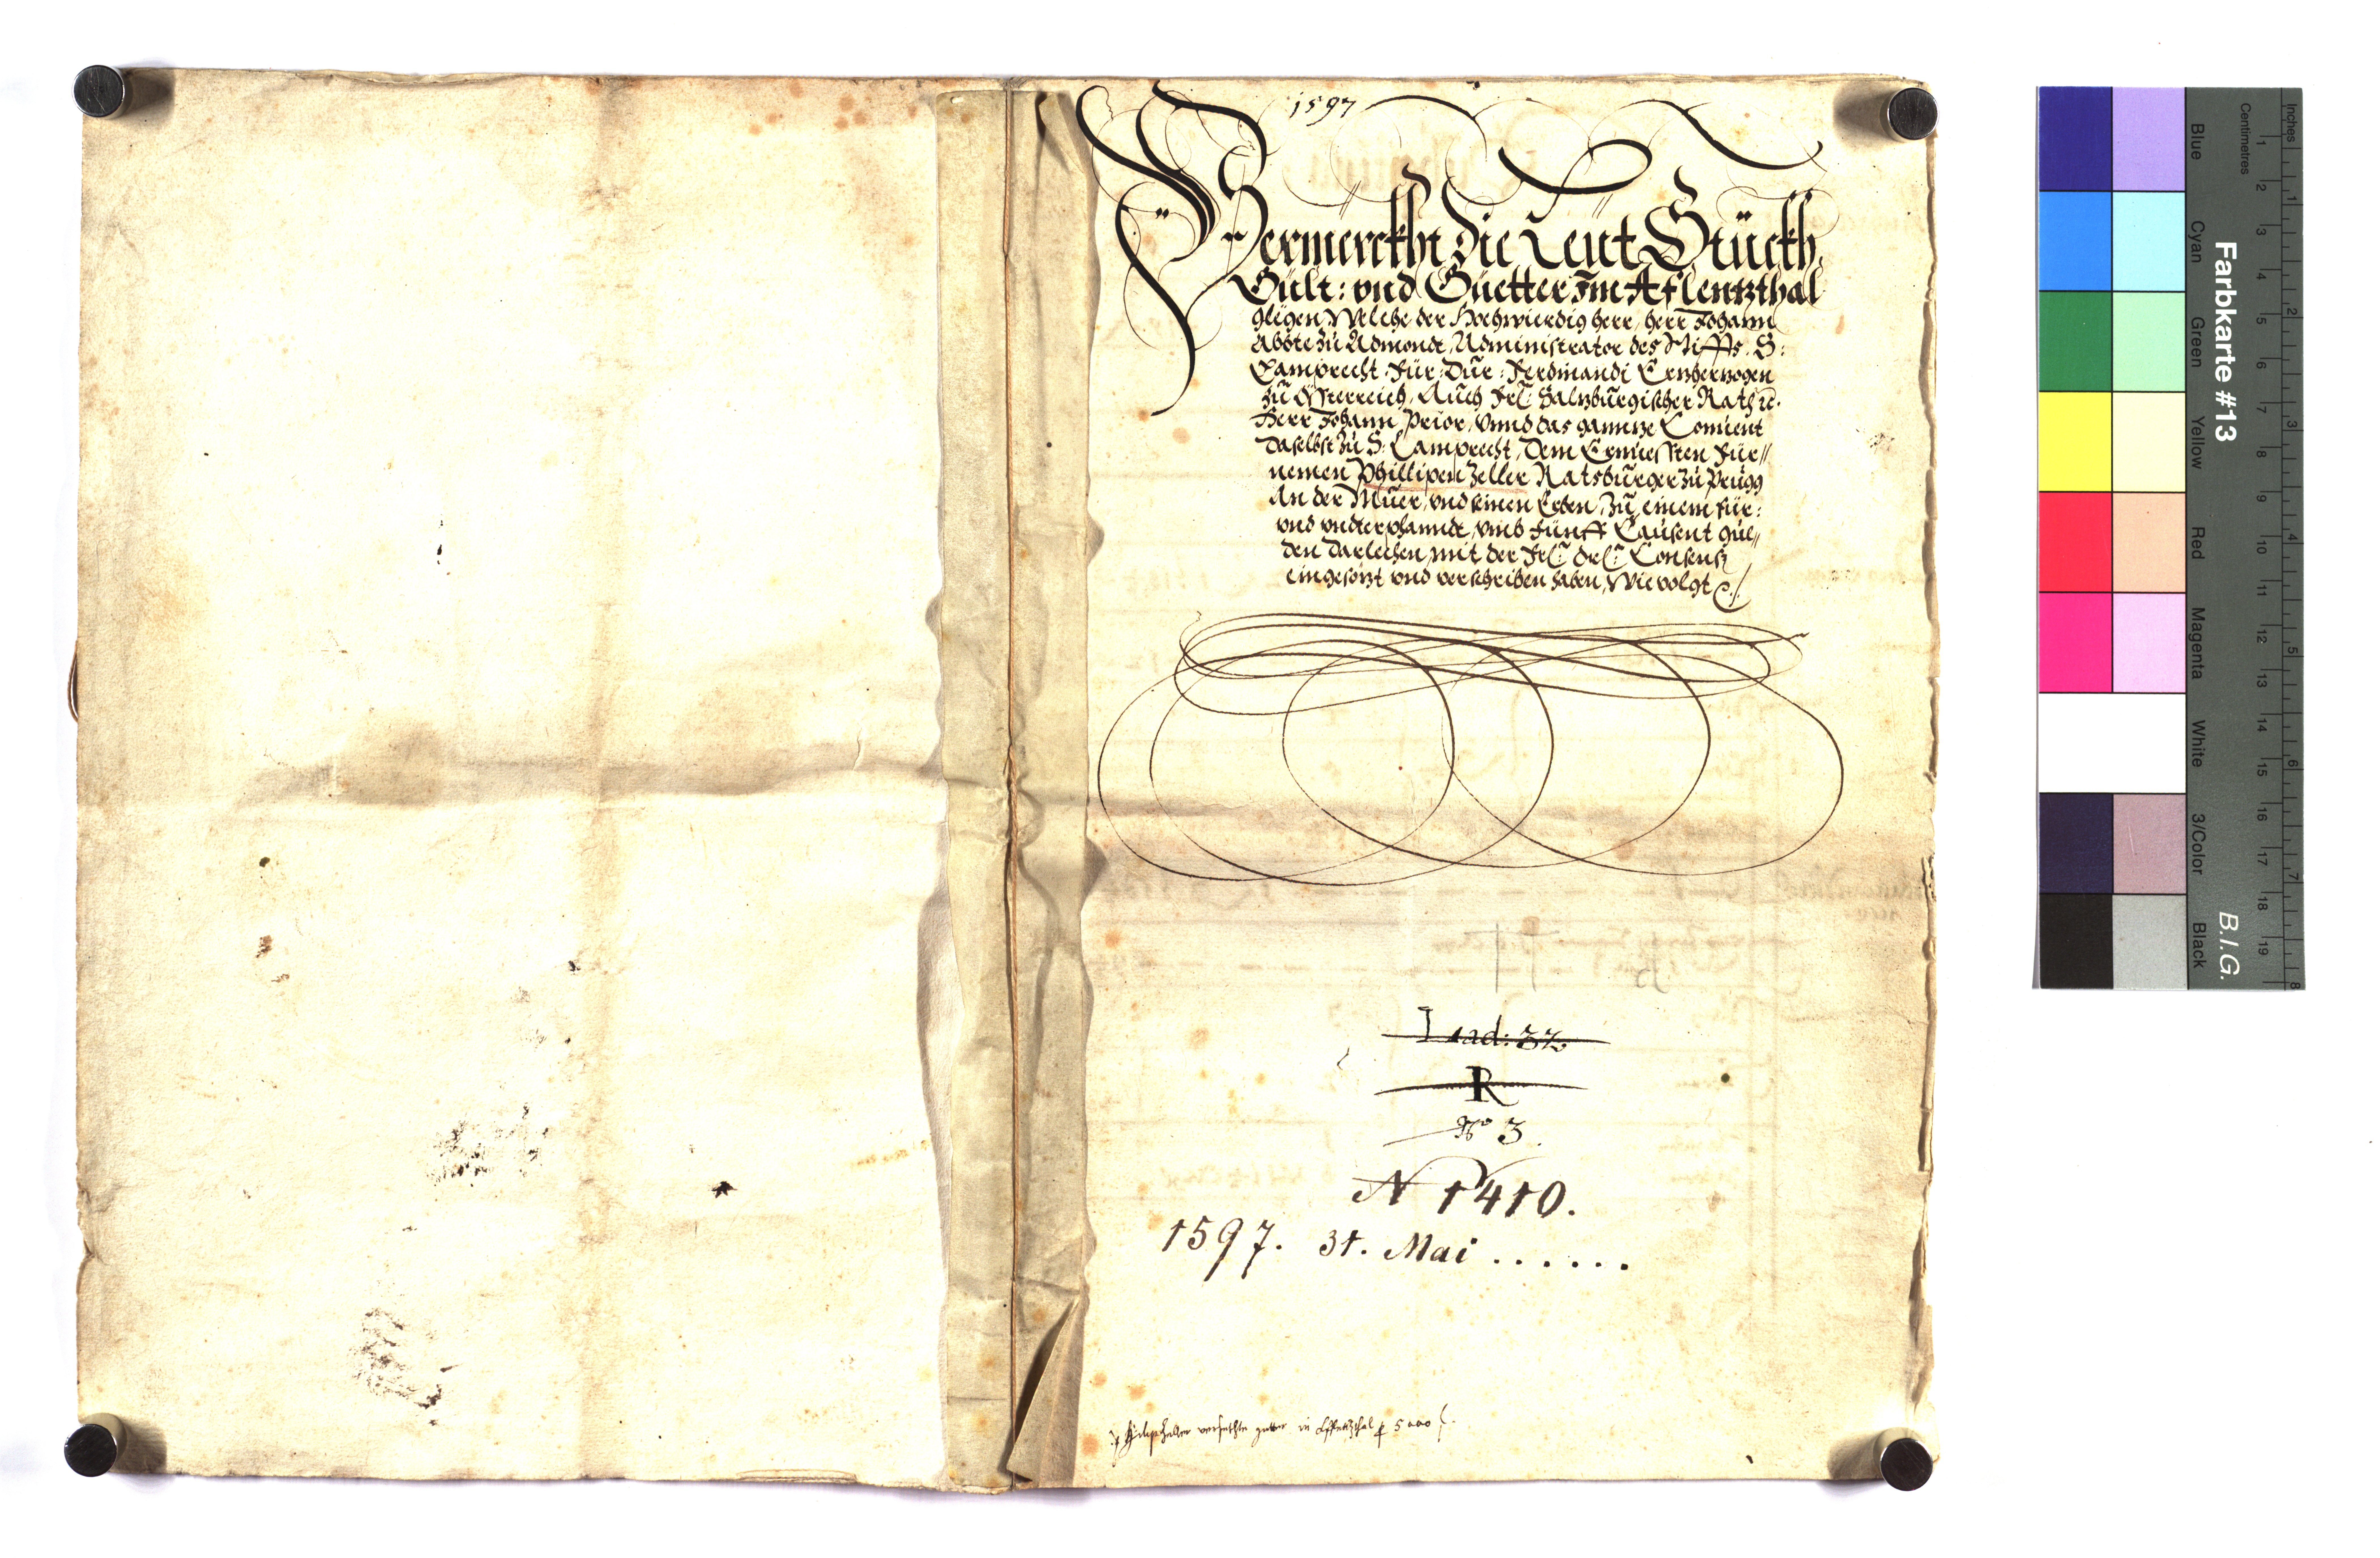 1597
Vermerckht die Leüt Stückh
Gült: vnd Güetter Im Aflentzthal
glegen Welche der Hochwierdig herr, herr Johann
Abbte zu Admondt, Administrator des Stiffts. S:
Lamprecht Für: Dür: Ferdinandi Ertzhertzogen
zu Össterreich, Auch Frl: Saltzburgischer Rath ec.
Herr Johann Prior, Vnnd das ganntze Conuent
Daselbst zu S: Lamprecht, Dem Ernuessten Für//
nemen Phillipen Zeller Ratsburger zu Prugg
An der Muer, vnd seinen Erben, Zu einem für:
vnd vndterphanndt, vmb Fünff Tausent gül//
den Darlechen, mit der Frl: Drl: Consens
eingesötzt vnd verschriben haben, Wie volgt
Lad: 32
R
No 3.
N 1410.
1597. 31. Mai . . . . . .
versetzte guetter in Afflentzthal p 5000 f.
Farbkarte #13
B.I.G.
Blue Cyan Green Yellow Red Magenta White 3/Color Black
Centimetres
1 2 3 4 5 6 7 8 9 10 11 12 13 14 15 16 17 18 19
Inches
1 2 3 4 5 6 7 8